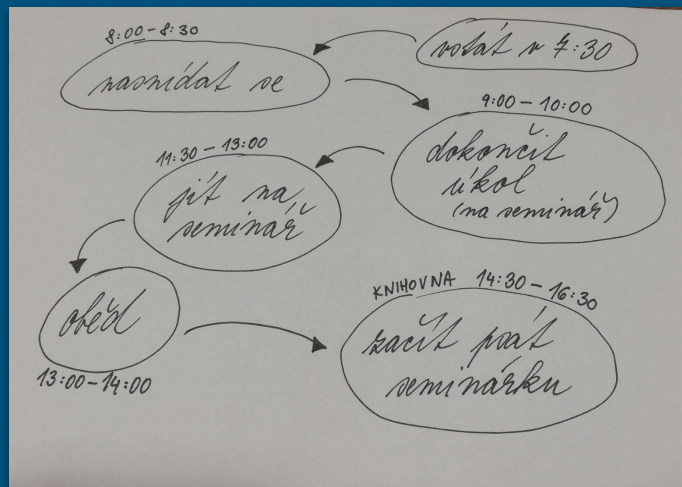 vstát v 7:30
8:00-8:30
nasnídat se
9:00-10:00
dokončit
úkol
(na seminář)
11:30-13:00
jít na
seminář
oběd
13:00-14:00
KNIHOVNA 14:30-16:30
začít psát
seminárku